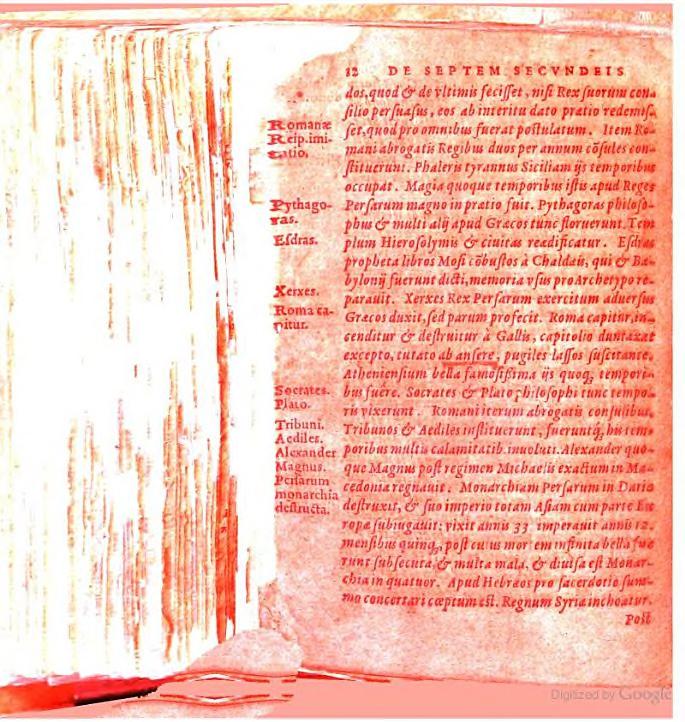 12 DE SEPTEM SECVNDEIS
dos, quod & de vltimis fecisset, nisi Rex suorum con-
silio persuasus, eos ab interitu dato pratio redemis-
Romanæ
Reip. imi-
tatio.
set, quod pro omnibus fuerat postulatum. Item Ro-
mani abrogatis Regibus duos per annum cõsules con-
stituerunt. Phaleris tyrannus Siciliam ijs temporibus
occupat. Magia quoque temporibus istis apud Reges
Pythago-
ras.
Persarum magno in pratio fuit. Pythagoras philoso-
phus & multi alij apud Gracos tunc floruerunt. Tem
Esdras.
plum Hierosolymis & ciuitas readificatur. Esdras
propheta libros Mosi cõbustos à Chaldais, qui & Ba-
bylonij fuerunt dicti, memoria vsus pro Archetypo re-
Xerxes.
parauit. Xerxes Rex Persarum exercitum aduersus
Roma ca-
pitur.
Gracos duxit, sed parum profecit. Roma capitur, in-
cenditur & destruitur à Gallis, capitolio duntaxat
excepto, tutato ab ansere, pugiles lassos suscitante.
Atheniensium bella famosissima ijs quoq; tempori-
Socrates.
Plato.
bus fuêre. Socrates & Plato philosophi tunc tempo-
ris vixerunt. Romani iterum abrogatis consulibus,
Tribuni.
Aediles.
Tribunos & Aediles instituerunt, fueruntq; his tem-
Alexander
Magnus.
poribus multis calamitatib. inuoluti. Alexander quo-
que Magnus post regimen Michaelis exactum in Ma-
Persarum
monarchia
destructa.
cedonia regnauit. Monarchiam Persarum in Dario
destruxit, & suo imperio totam Asiam cum parte Eu
ropæ subiugauit: vixit annis 33 imperauit annis 12.
mensibus quinq; post cuius mortem infinita bella fue
runt subsecuta, & multa mala, & diuisa est Monar-
chia in quatuor. Apud Hebraos pro sacerdotio sum-
mo concertari cœptum est. Regnum Syria inchoatur.
Post
Digitized by Google